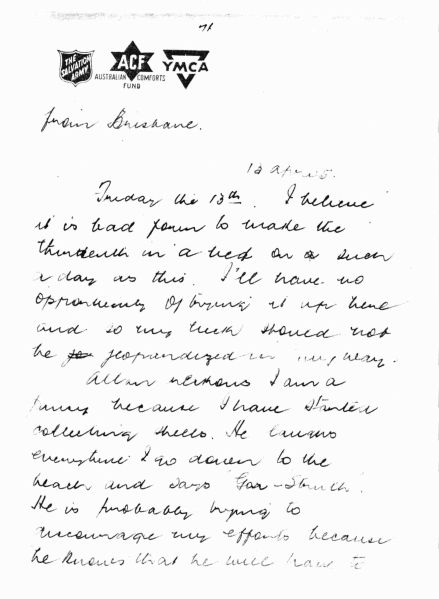 THE SALVATION ARMY
ACF
AUSTRALIAN COMFORTS FUND
YMCA
from Brisbane.
13 April
Friday the 13th. I believe
it is bad form to make the
thirteenth in a bed on a such
a day as this. I'll have no
opportunity of trying it up here
and so my luck should not
be jeopardized in any way.
Allan reckons I am a
because I have started
collecting shells. He laughs
everytime I go down to the
beach and says Gor-Struth.
He is probably trying to
discourage my efforts because
he knows that he will have to